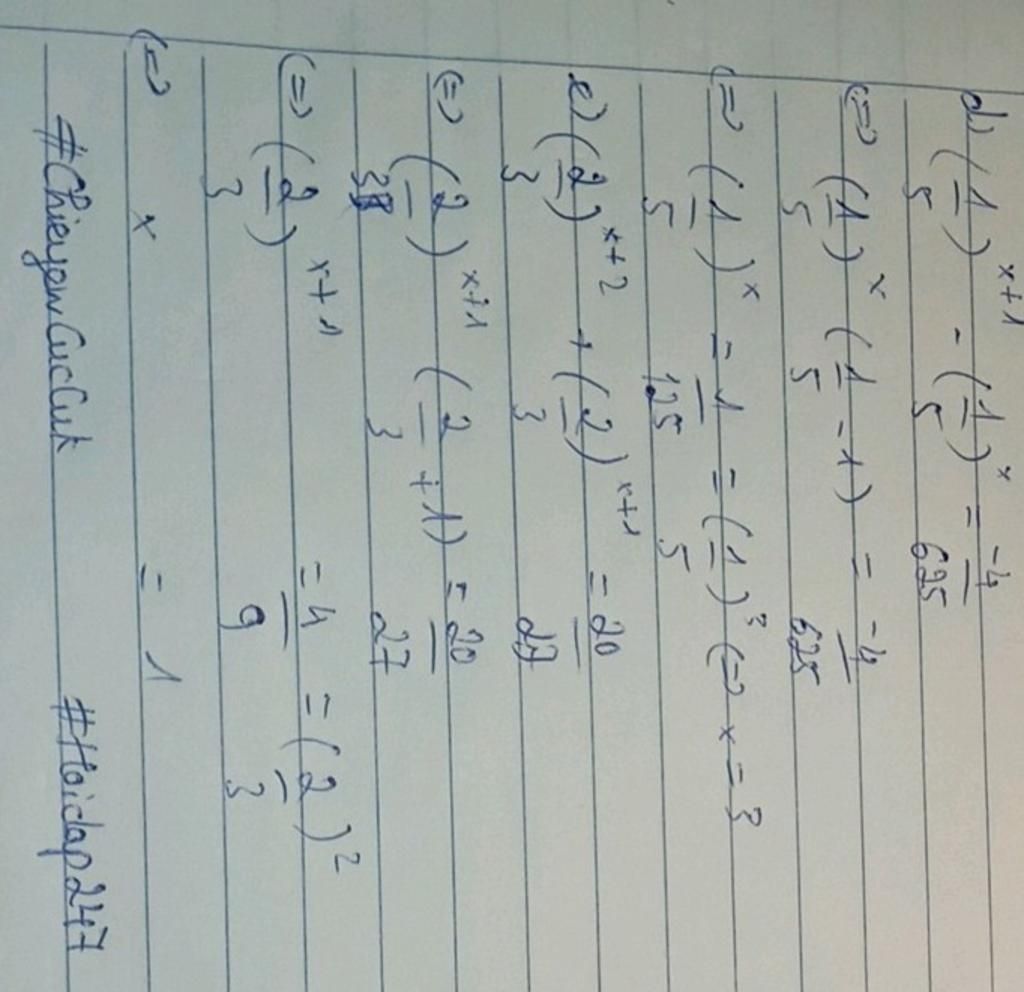 d) (1/5)^(x+1) - (1/5)^x = -4/625
(=) (1/5)^x (1/5 - 1) = -4/625
(=) (1/5)^x = 1/125 = (1/5)^3 (=) x = 3
e) (2/3)^(x+2) + (2/3)^(x+1) = 20/27
(=) (2/3)^(x+1) (2/3 + 1) = 20/27
(=) (2/3)^(x+1) = 4/9 = (2/3)^2
(=) x = 1
#ChieyewCucCut #Hoidap247